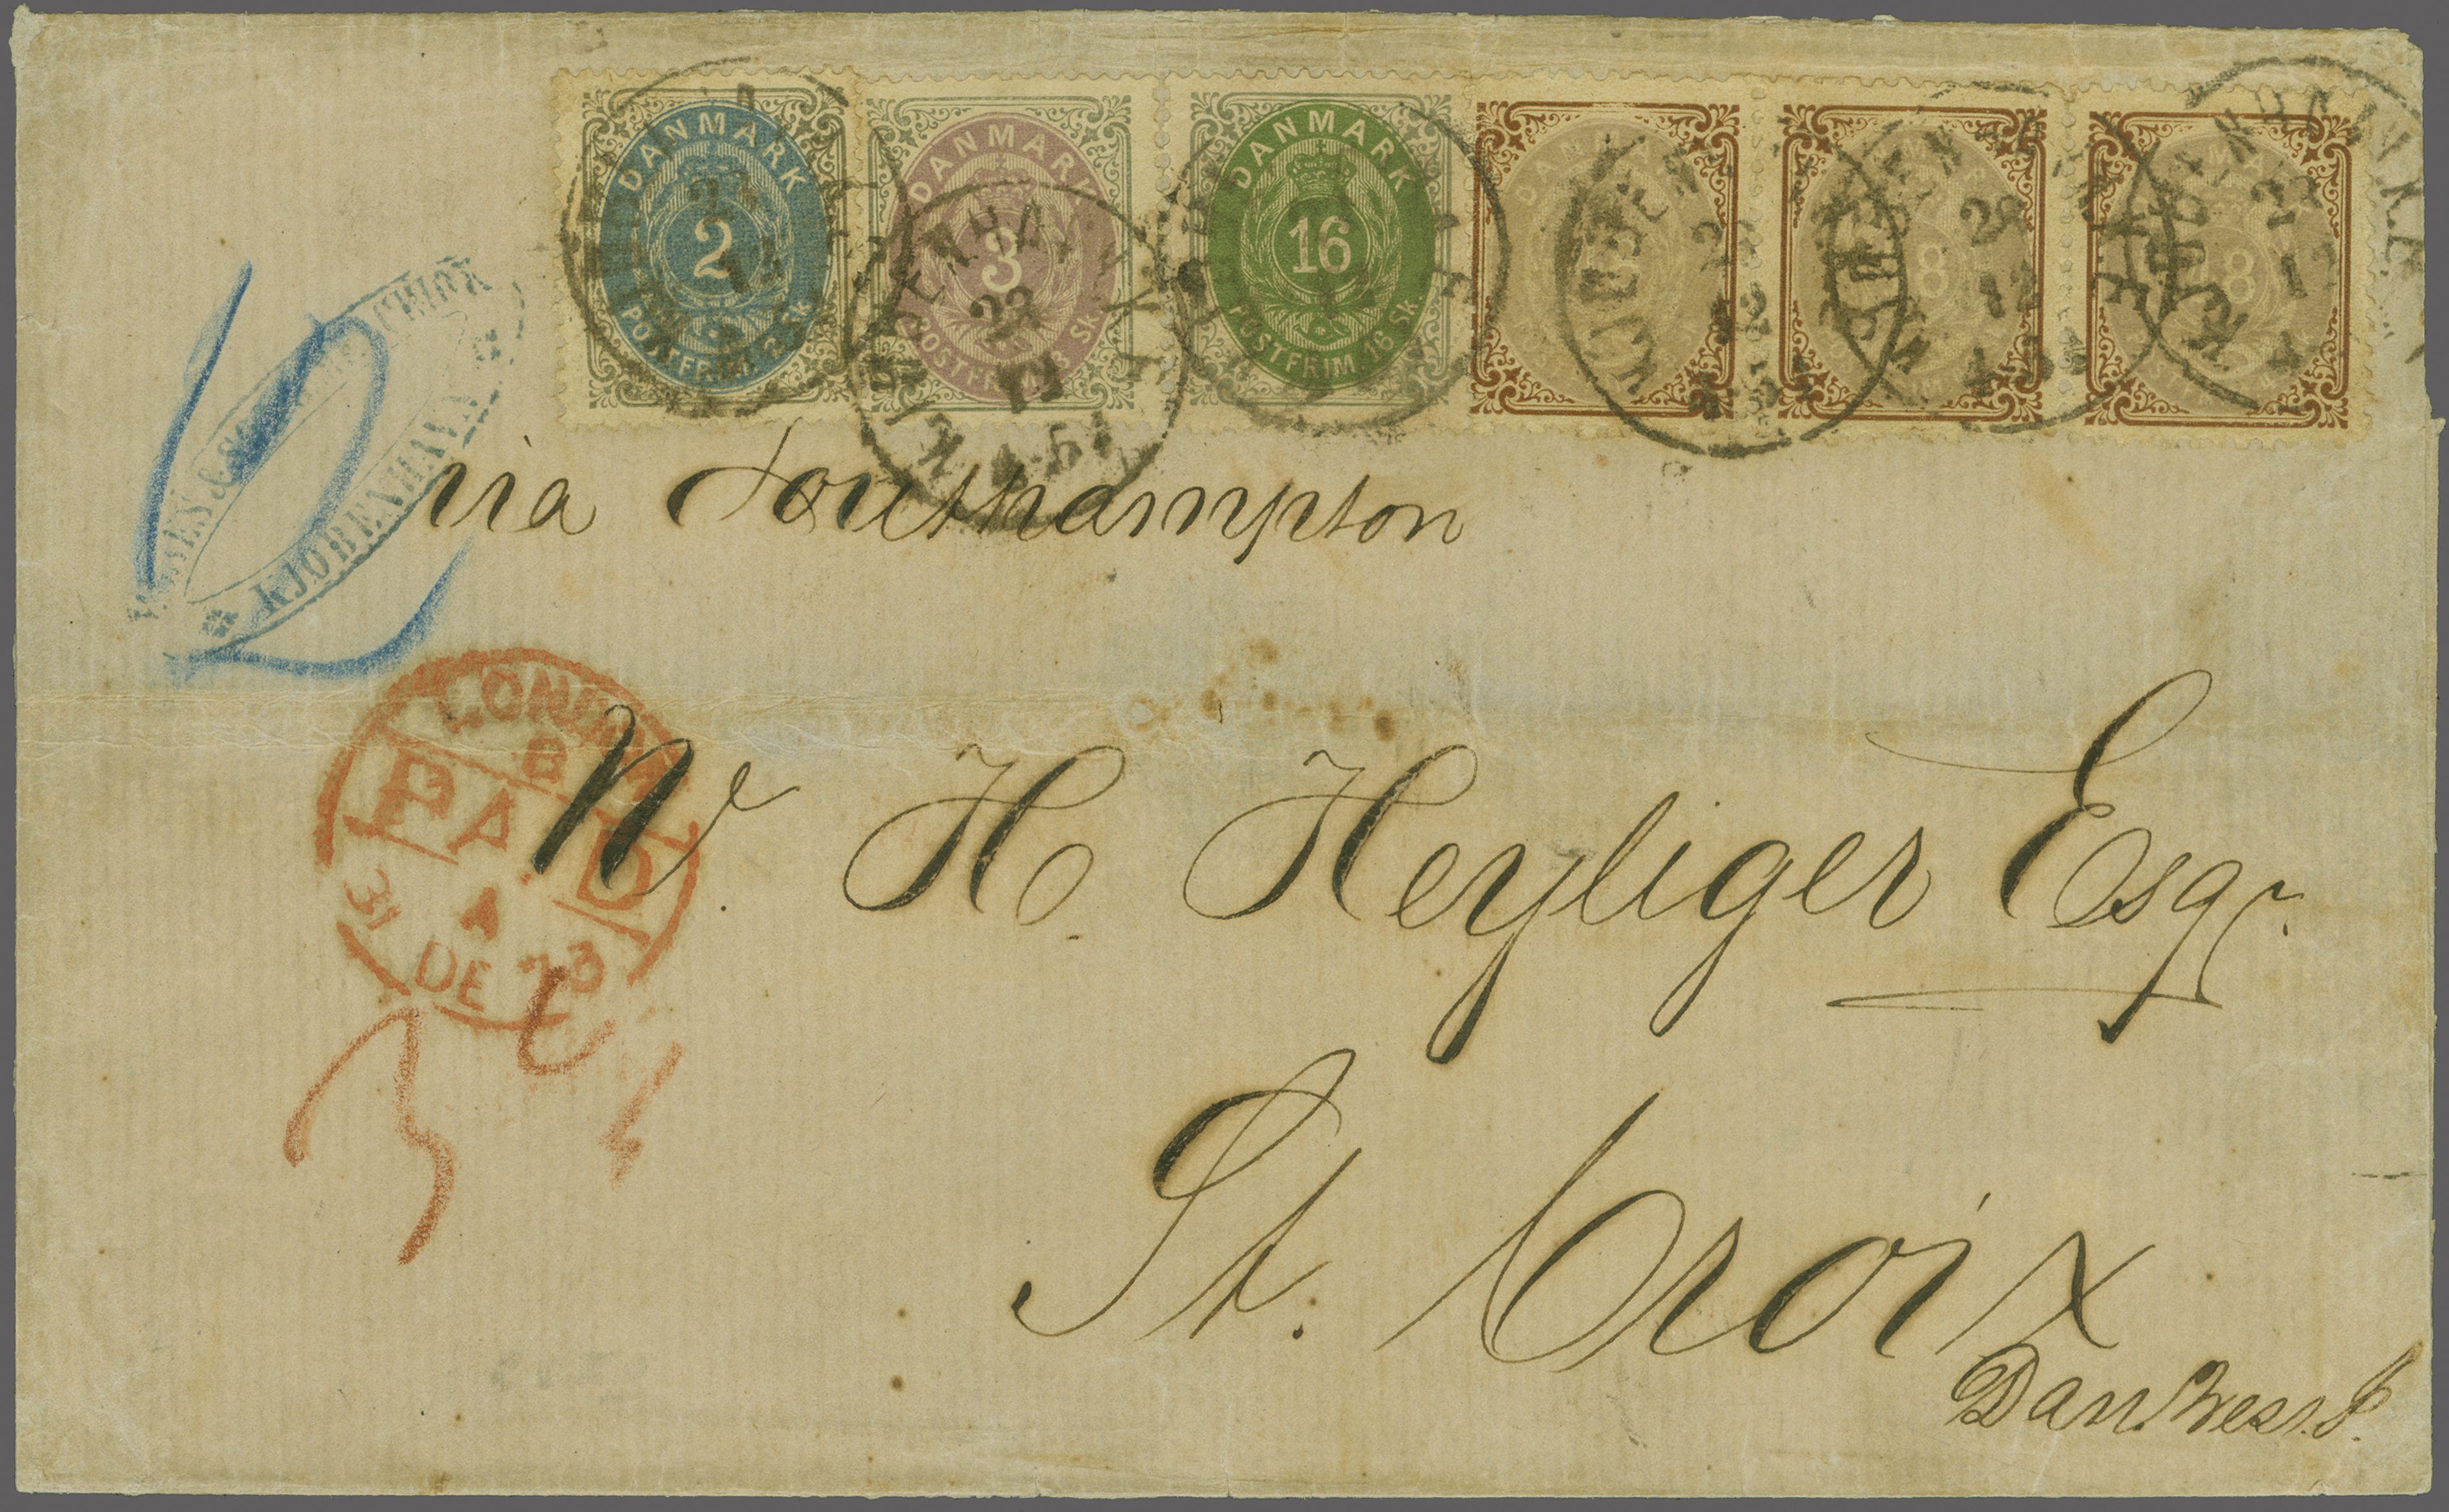 DANMARK
2
POSTFRIM. 2 SK.
DANMARK
3
POSTFRIM. 3 SK.
DANMARK
16
POSTFRIM. 16 SK.
8
48
KJØBENHAVN K.K.
23
12
4-5 E
via Southampton
KJÖBENHAVN
LONDON
B
PAID
A
31 DE 73
W. H. Heyliger Esqr.
St. Croix
Dan. West. I.